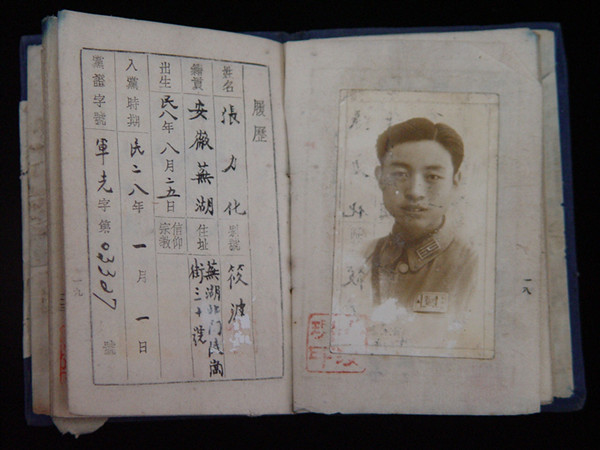 履歷
姓名 張力化 別號 筱波
籍貫 安徽蕪湖 住址 蕪湖北門
街三十號
出生 民八年八月二五日 信仰宗教
入黨時期 民二八年一月一日
黨證字號 軍 字第03307號
一九
一八